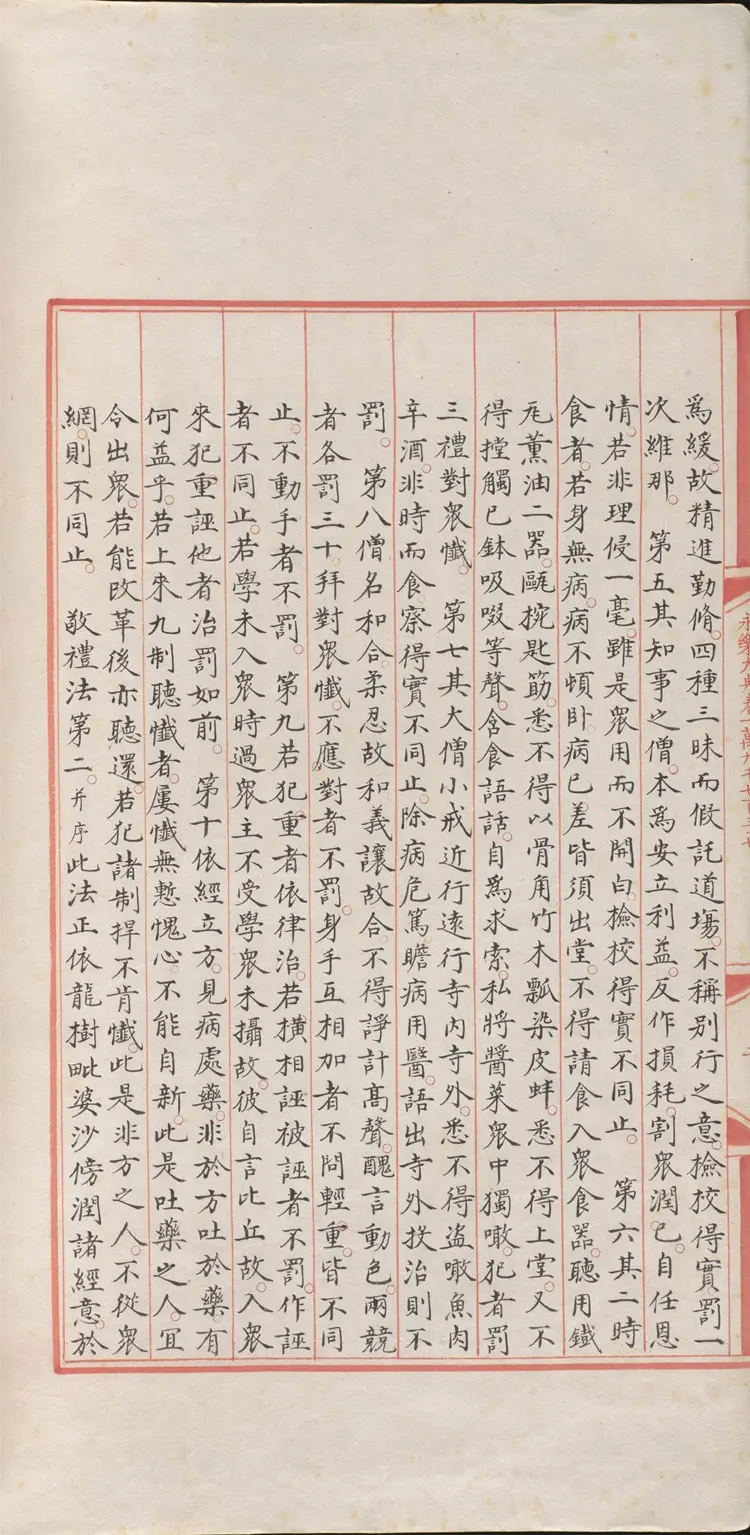 永樂大典卷一萬九千七百三十七
爲緩。故精進勤脩。四種三昧而假託道塲。不稱別行之意。檢校得實罰一
次維那。　第五其知事之僧。本爲安立利益。反作損耗。割衆潤己。自任恩
情。若非理侵一毫。雖是衆用而不開白。檢校得實不同止。　第六其二時
食者。若身無病。病不頓卧。病已差皆須出堂。不得請食入衆食器。聽用鐵
瓦薰油二器。甌椀匙筯。悉不得以骨角竹木瓢染皮蚌。悉不得上堂。又不
得摚觸已鉢吸啜等聲。含食語話。自爲求索。私將醬菜衆中獨噉。犯者罰
三禮對衆懺。　第七其大僧小戒近行遠行寺内寺外。悉不得盜噉魚肉
辛酒。非時而食。察得實不同止。除病危篤瞻病用醫。語出寺外投治則不
罰。　第八僧名和合。柔忍故和義讓故合。不得諍計高聲。醜言動色。兩競
者各罰三十。拜對衆懺。不應對者不罰。身手互相加者不問輕重。皆不同
止。不動手者不罰。　第九若犯重者依律治。若橫相誣被誣者不罰。作誣
者不同止。若學未入衆時過衆主不受學衆未攝故。彼自言比丘故。入衆
來犯重誣他者治罰如前。　第十依經立方。見病處藥。非於方吐於藥。有
何益乎。若上來九制聽懺者。屢懺無慙愧心。不能自新。此是吐藥之人。冝
令出衆。若能改革後亦聽還。若犯諸制捍不肯懺。此是非方之人。不從衆
網。則不同止。　敬禮法第二。并序此法正依龍樹毗婆沙傍潤諸經意。於